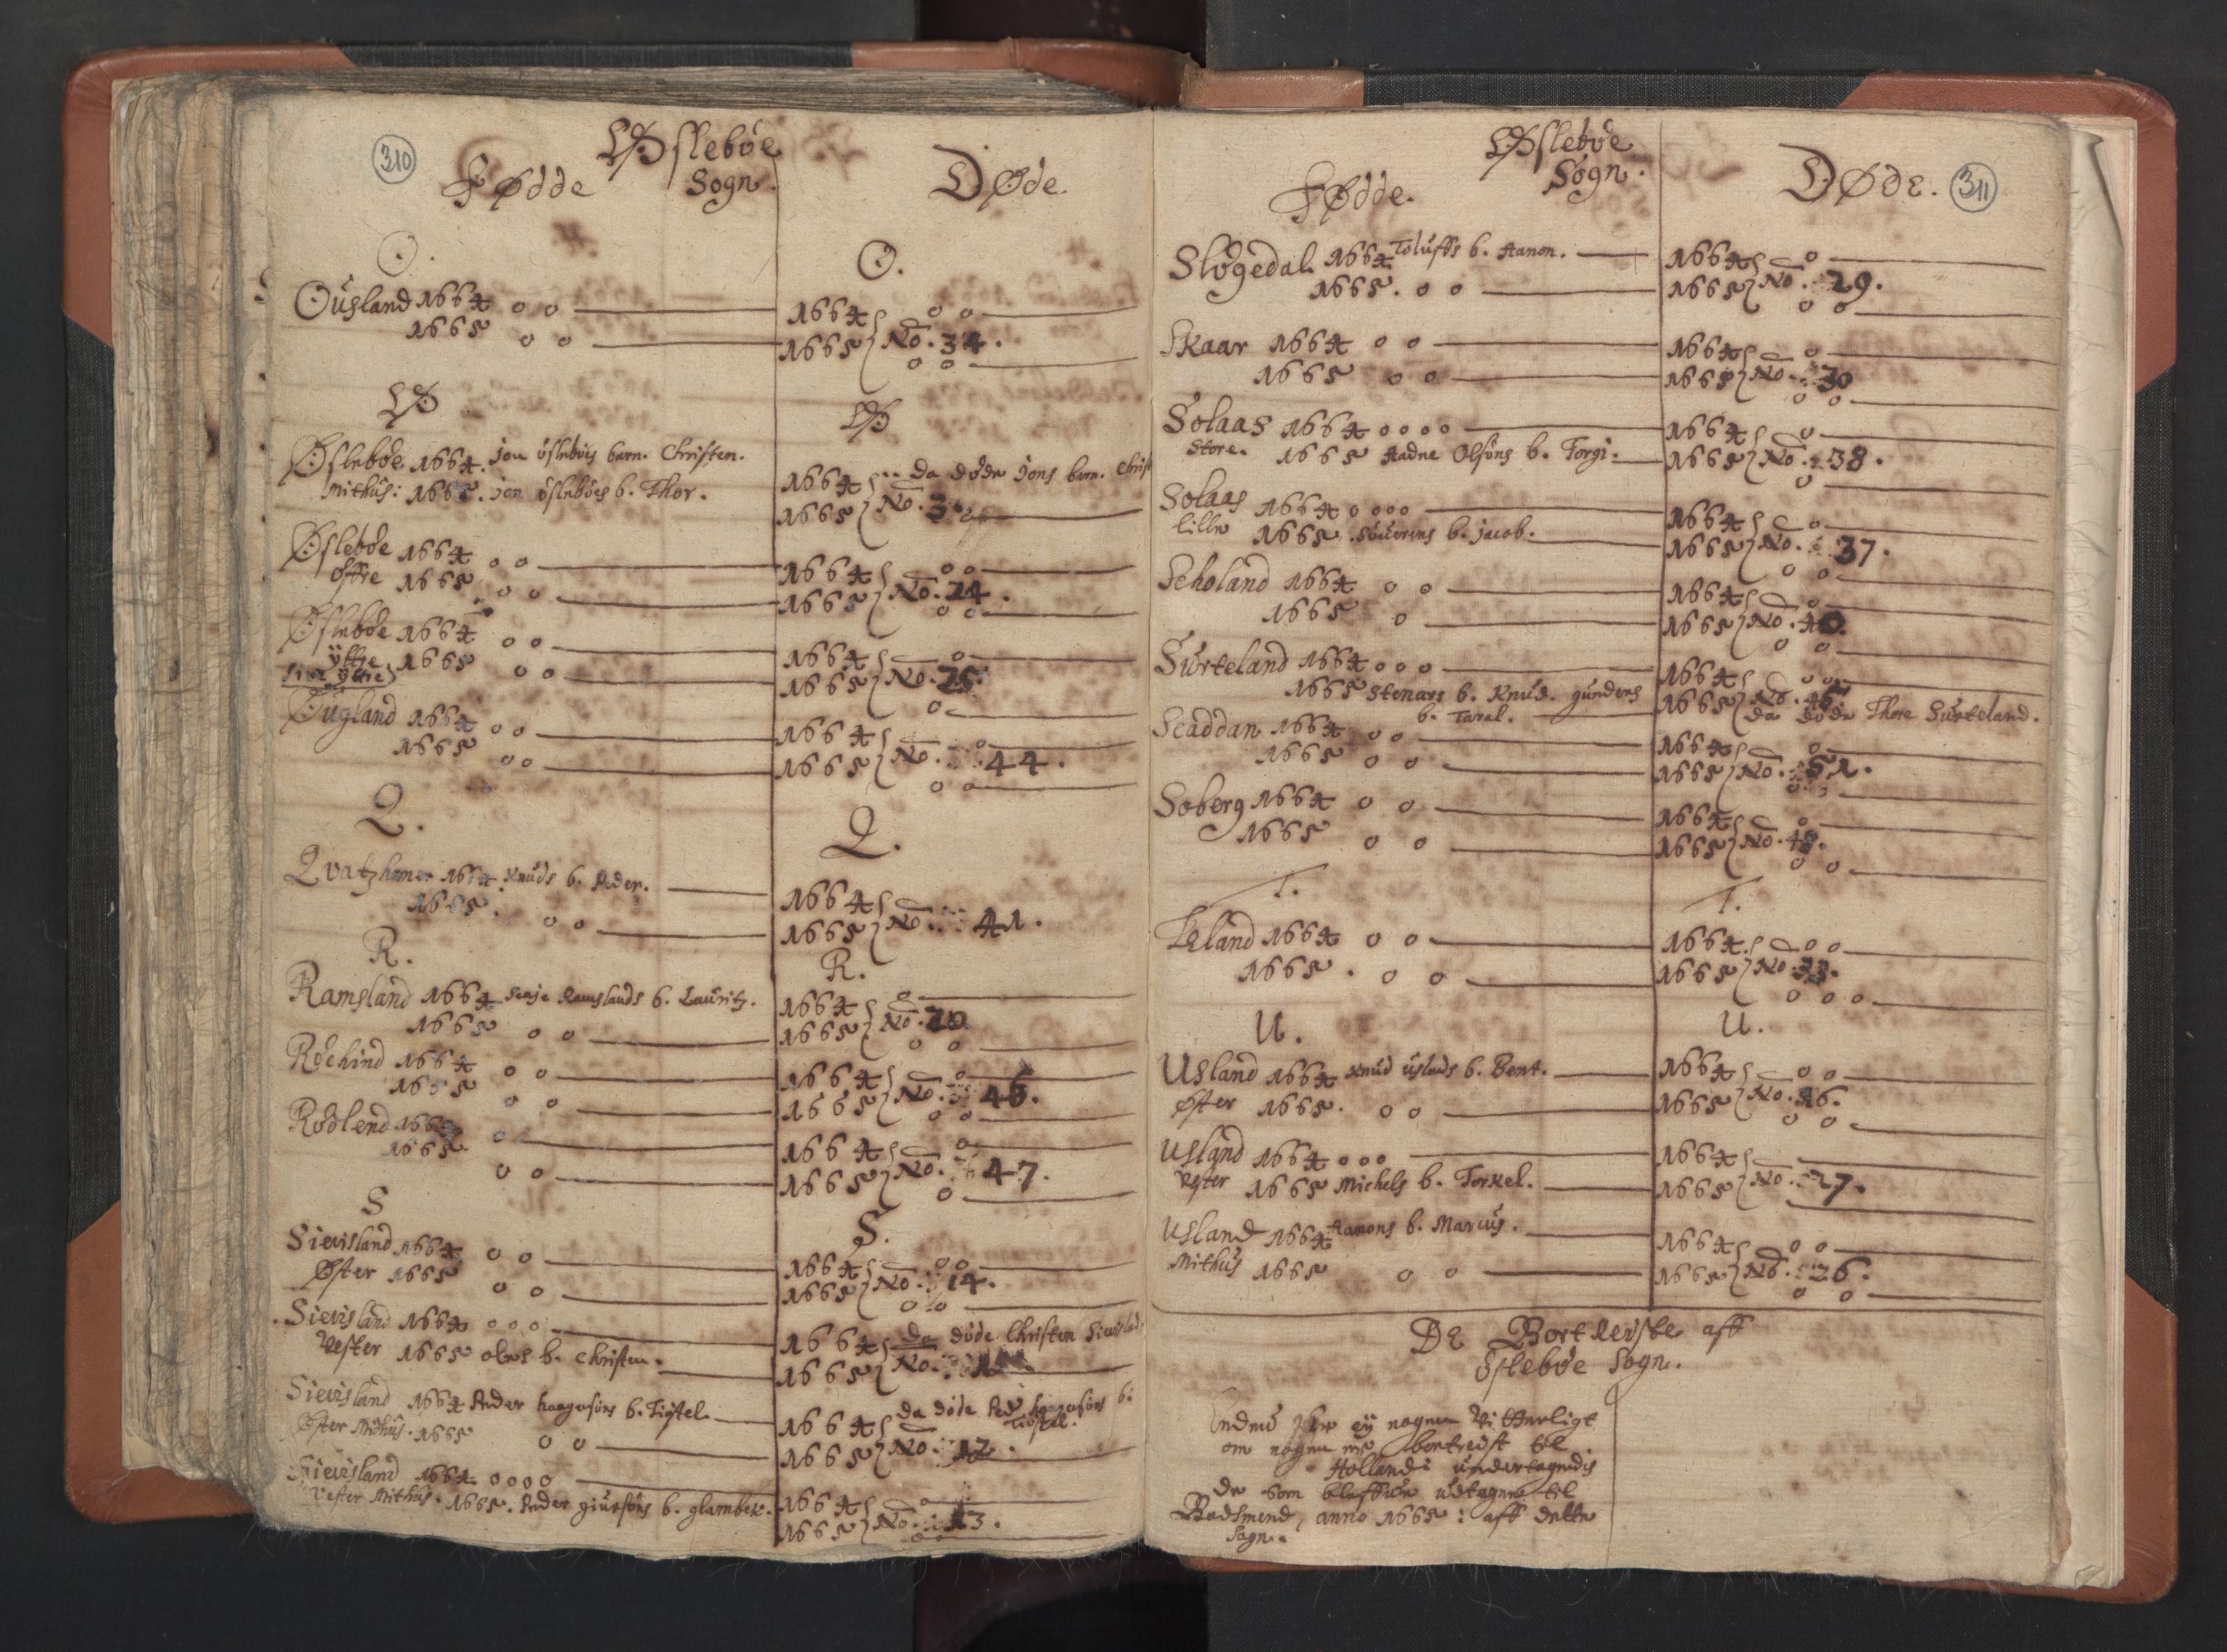 310
Øslebøe
Fødde
Sogn.
Døde.
O.
O.
Ousland 1664 o o
1665 o o
1664 o o
1665 No. 34.
o o
Ø
Ø
Øslebøe 1664. Jon öslebøes barn. Christen.
Mithus: 1665. jon öslebøes b. Thor.
1664 da døde Jons barn. Christ
1665 No.
Øslebøe 1664 o o
öffre 1665 o o
1664 o o
1665 No. 24.
o o
Øslebøe 1664 o o
ÿttre 1665 o o
1664 o
1665 No. 25.
o
Øugland 1664 o o
1665 o o
1664 o
1665 No. 44.
o o
Q.
Q.
Qvatzhomer 1664. Knuds b. Peder.
1665. o o
1664
1665 No. 41.
R.
R.
Ramsland 1664 Ramslands b. Lauritz.
1665 o o
1664 o
1665 No. 20
o o
Röchind 1664 o o
1665 o o
1664 o
1665 No. 46.
o o
Rödlend 1664 o
1665 o o
1664 o
1665 No. 47.
o
S
S.
Sievisland 1664 o o
Øster 1665 o o
1664 o o
1665 No. 14.
o o
Sievisland 1664 o o o
Vester 1665 oles b. Christen.
1664 da døde Christen
1665 No.
Sievisland 1664 Peder haagensöns b. Tiöstel.
Øster Mithus. 1665 o o
1664 da döde Ped haagensöns b:
Tiöstel.
1665 No. 12.
Sievisland 1664 o o o o
Vester Mithus. 1665. Peder giursöns b. glambek.
1664 o
1665 No. 13.
Øslebøe
Sogn.
Fødde.
Døde. 311
Slögedal. 1664 Toluffs b. Aanon.
1665. o o
1664 o
1665 No. 29.
o o
Skaar 1664 o o
1665 o o
1664 o
1665 No. 30
o o
Solaas 1664 o o o o
Store. 1665 Aadne Olsöns b. Torgi.
1664 o
1665 No. 38.
o
Solaas 1664 o o o o
lille 1665 Söuerens b. jacob.
1664 o
1665 No. 37.
o o
Scholand 1664 o o
1665 o
1664 o
1665 No. 40.
o o
Surteland 1664 o o o
1665 Stenars b. Knud. gunders
b. Taral.
1664 o o
1665 No.
da döde Thore Surteland.
Scaddan 1664 o o
1665 o o
1664 o
1665 No.
Soberg 1664 o o
1665 o o
1664 o
1665 No. 48.
o o
T.
T.
Teland 1664 o o
1665. o o
1664. o o
1665 No. 33.
o o o
U.
U.
Usland 1664 Knud uslads b. Bent.
Øster 1665. o o
1664 o o
1665 No.
o o
Usland 1664 o o o
Vester 1665 Michels b. Torkel.
1664
1665 No. 27.
Usland 1664 Aanons b. Marcus.
Mithus 1665 o o
1664 o o
1665 No. 26.
o o
De Bortreyste aff
öslebøe Sogn.
ey nogen Vitterligt
om nogen er bortreist til
Holland: undertagendis
de som bleffue udtagne til
Badsmend, anno 1665: aff dette
Sogn.